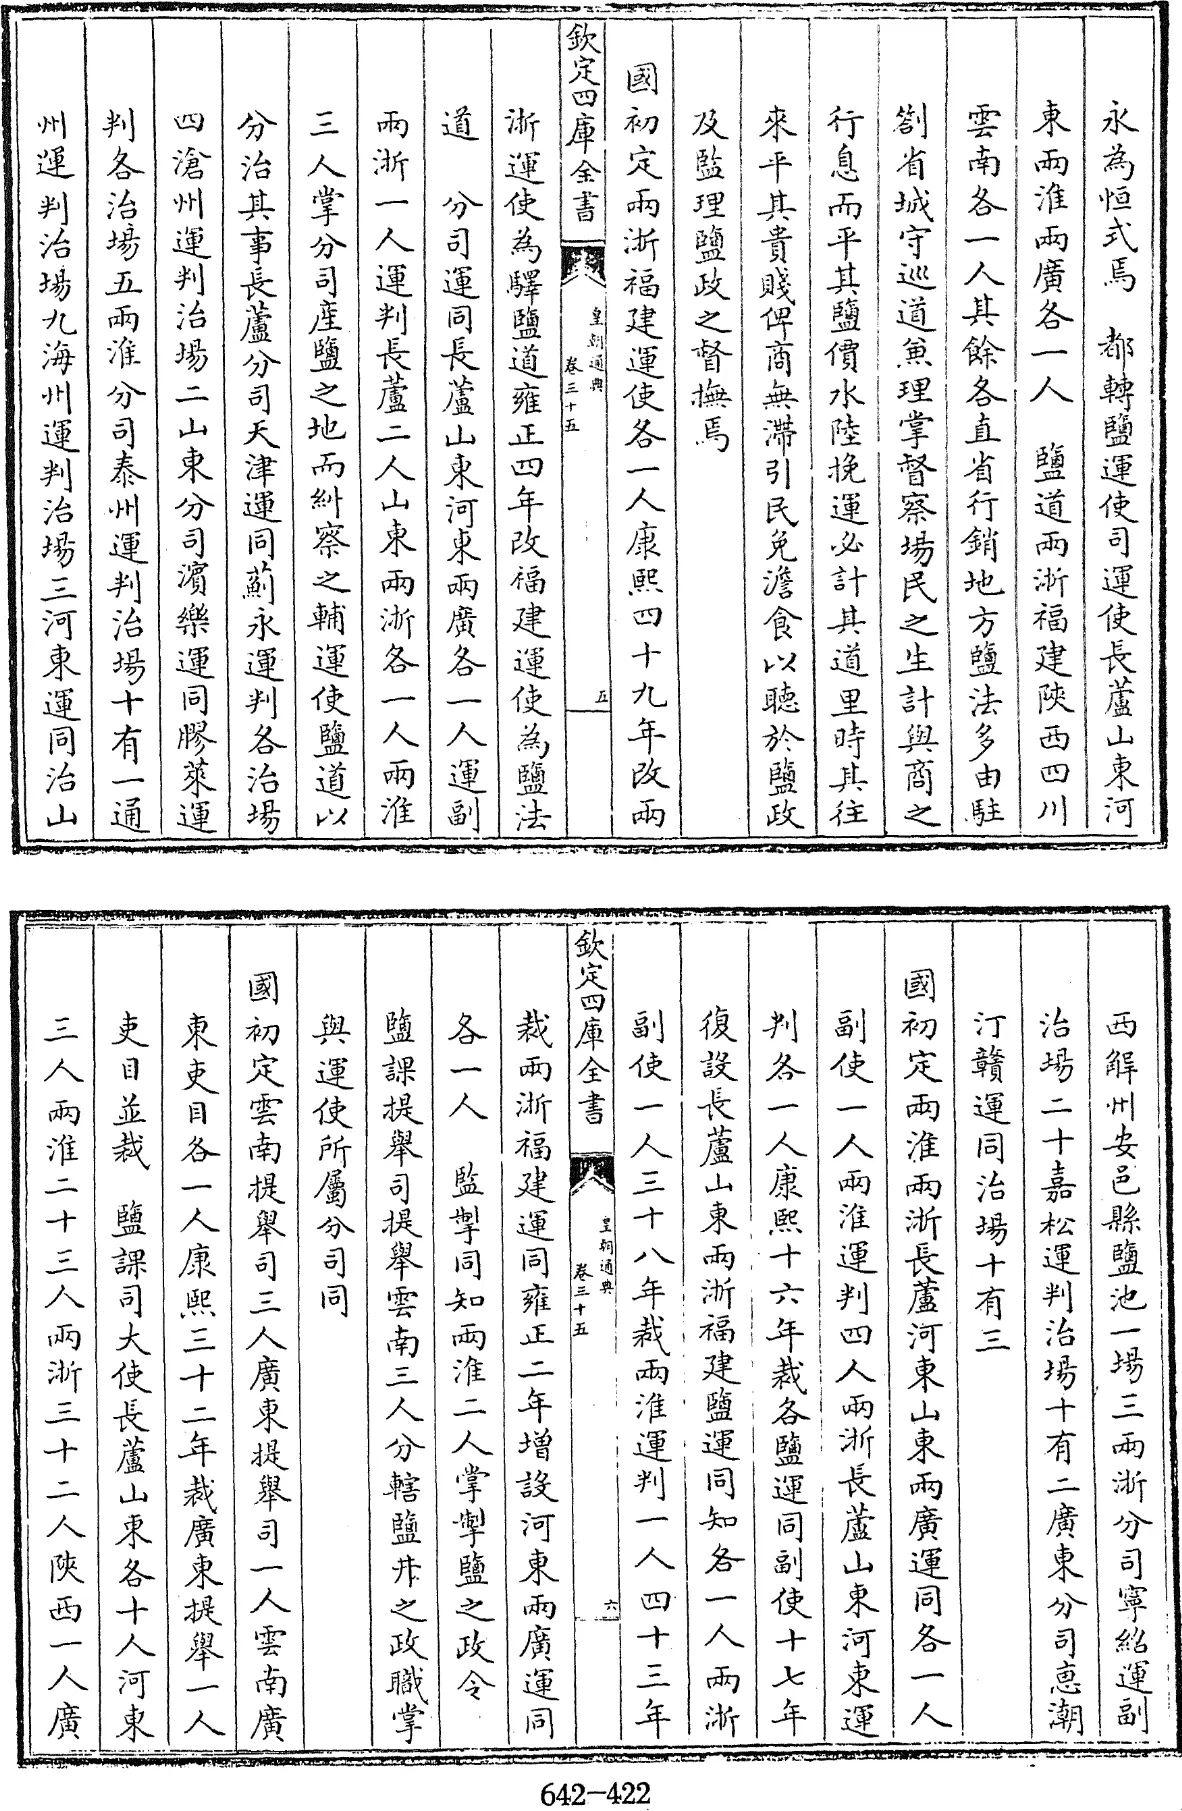 永為恒式焉　都轉鹽運使司運使長蘆山東河
東兩淮兩廣各一人　鹽道兩浙福建陝西四川
雲南各一人其餘各直省行銷地方鹽法多由駐
劄省城守巡道兼理掌督察場民之生計與商之
行息而平其鹽價水陸挽運必計其道里時其往
來平其貴賤俾商無滯引民免澹食以聽於鹽政
及監理鹽政之督撫焉
國初定兩浙福建運使各一人康熙四十九年改兩
欽定四庫全書
皇朝通典
卷三十五
五
浙運使為驛鹽道雍正四年改福建運使為鹽法
道　分司運同長蘆山東河東兩廣各一人運副
兩浙一人運判長蘆二人山東兩浙各一人兩淮
三人掌分司產鹽之地而糾察之輔運使鹽道以
分治其事長蘆分司天津運同薊永運判各治場
四滄州運判治場二山東分司濱樂運同膠萊運
判各治場五兩淮分司泰州運判治場十有一通
州運判治場九海州運判治場三河東運同治山
西解州安邑縣鹽池一場三兩浙分司寧紹運副
治場二十嘉松運判治場十有二廣東分司惠潮
汀贛運同治場十有三
國初定兩淮兩浙長蘆河東山東兩廣運同各一人
副使一人兩淮運判四人兩浙長蘆山東河東運
判各一人康熙十六年裁各鹽運同副使十七年
復設長蘆山東兩浙福建鹽運同知各一人兩浙
副使一人三十八年裁兩淮運判一人四十三年
欽定四庫全書
皇朝通典
卷三十五
六
裁兩浙福建運同雍正二年增設河東兩廣運同
各一人　監掣同知兩淮二人掌掣鹽之政令
鹽課提舉司提舉雲南三人分轄鹽井之政職掌
與運使所屬分司同
國初定雲南提舉司三人廣東提舉司一人雲南廣
東吏目各一人康熙三十二年裁廣東提舉一人
吏目並裁　鹽課司大使長蘆山東各十人河東
三人兩淮二十三人兩浙三十二人陝西一人廣
642-422